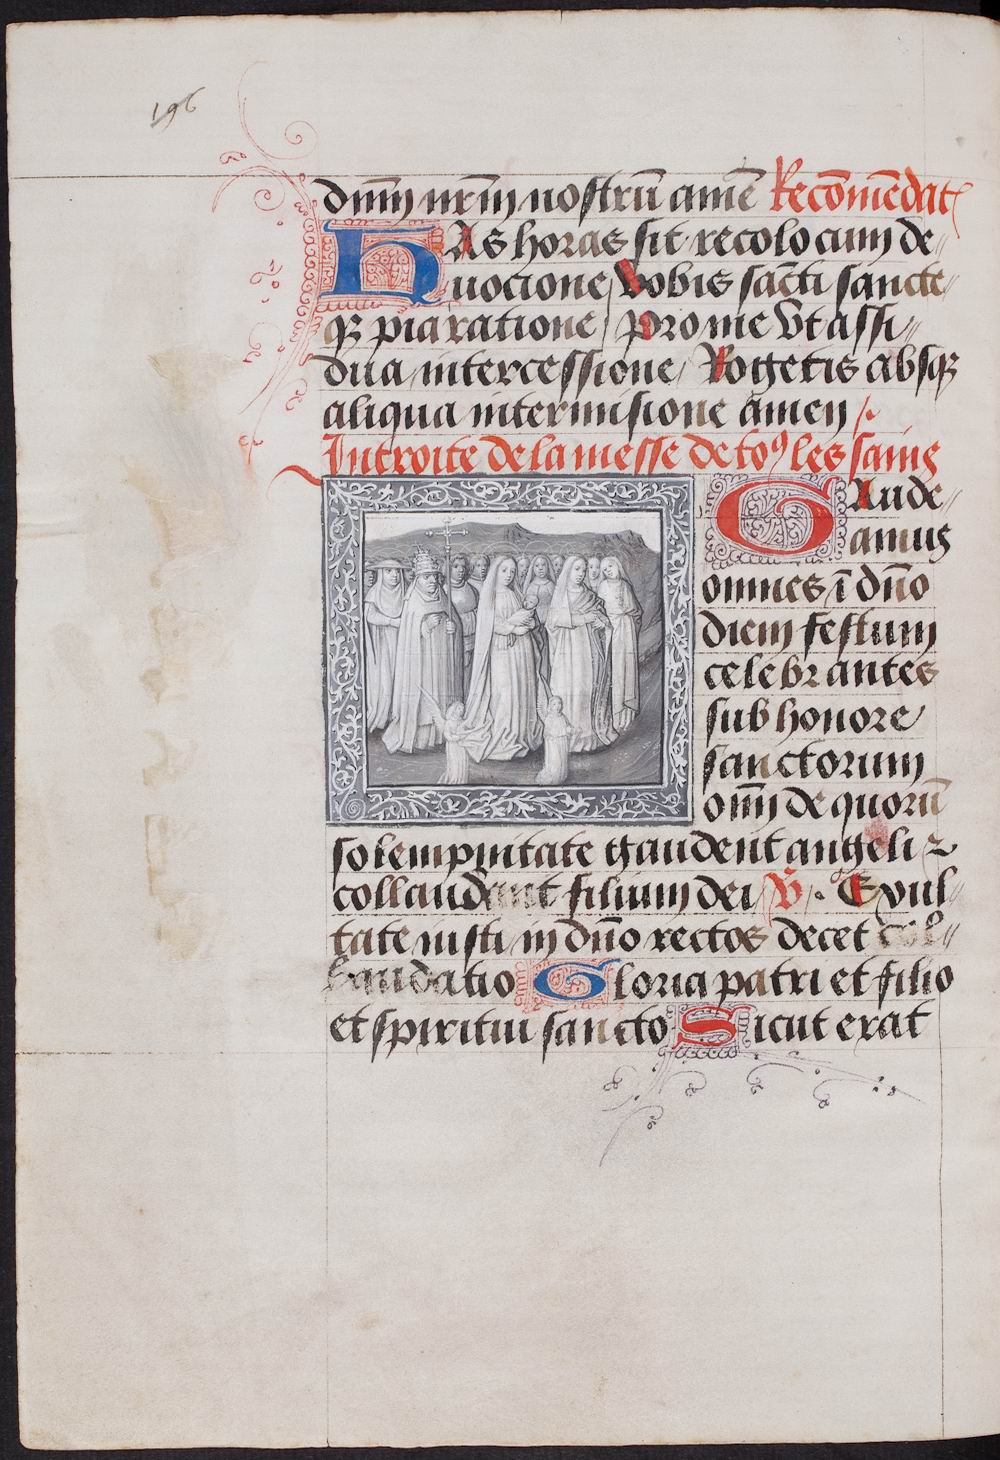 196
dnm nrm nostrū amē Recōmēdat
HAs horas sit recolo cum de„
uocione vobis sācti sancte„
q; pia ratione / pro me vt assi„
dua intercessione / Rogetis absq;
aliqua intermisione amen
Introite de la messe de to⁹ les sains
GAude„
amus
omnes ī dn̄o
diem festum
celebrantes
sub honore
sanctorum
om̄ de quorū
solempnitate gaudent angeli ⁊
collaudant filium dei / v̄ . Exul„
tate iusti in dn̄o rectos decet col„
laudatio Gloria patri et filio
et spiritui sancto Sicut erat